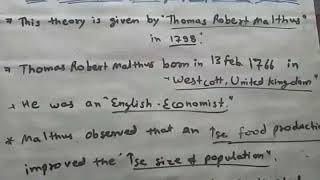 → This theory is given by "Thomas Robert Malthus"
in 1798.
→ Thomas Robert Malthus born in 13 feb 1766 in
"Westcott, United kingdom"
→ He was an "English - Economist."
* Malthus observed that an ↑se food production
improved the "↑se size of population".